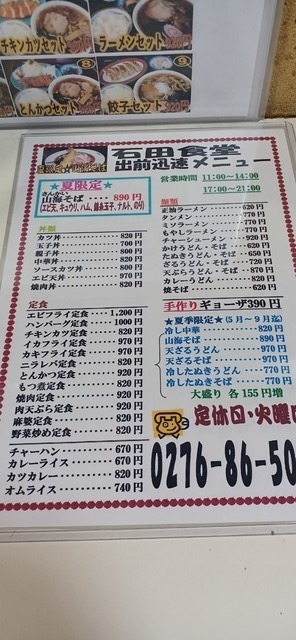 チキンカツセット
ラーメンセット
とんかつセット
⑧
餃子セット
⑨
石田食堂
出前迅速メニュー
★夏限定★
さんかい
山海そば ・・・ 890円
(エビ天、キュウリ、ハム、錦糸玉子、ナルト、のり)
営業時間 11:00~14:00
17:00~21:00
丼類
カツ丼 ・・・・・・ 820円
玉子丼 ・・・・・・ 700円
親子丼 ・・・・・・ 800円
中華丼 ・・・・・・ 820円
ソースカツ丼 ・・・ 820円
エビ天丼 ・・・・・ 970円
焼肉丼 ・・・・・・ 820円
定食
エビフライ定食 ・・・・ 1,200円
ハンバーグ定食 ・・・・ 1000円
チキンカツ定食 ・・・・ 820円
イカフライ定食 ・・・・ 970円
カキフライ定食 ・・・・ 970円
ニラレバ定食 ・・・・・ 820円
とんかつ定食 ・・・・・ 920円
もつ煮定食 ・・・・・・ 820円
焼肉定食 ・・・・・・・ 920円
肉天ぷら定食 ・・・・・ 920円
麻婆定食 ・・・・・・・ 820円
野菜炒め定食 ・・・・・ 820円
チャーハン ・・・・・・ 670円
カレーライス ・・・・・ 670円
カツカレー ・・・・・・ 820円
オムライス ・・・・・・ 740円
麺類
正油ラーメン ・・・・・ 620円
タンメン ・・・・・・・ 770円
ミソラーメン ・・・・・ 770円
もやしラーメン ・・・・ 770円
チャーシューメン ・・・ 920円
かけうどん・そば ・・・ 620円
たぬきうどん・そば ・・ 650円
ざるうどん・そば ・・・ 720円
天ぷらうどん・そば ・・ 870円
カレーうどん ・・・・・ 820円
焼そば ・・・・・・・・ 620円
手作りギョーザ390円
★夏季限定★(5月~9月迄)
冷し中華 ・・・・・・・ 820円
山海そば ・・・・・・・ 890円
天ざるうどん ・・・・・ 970円
天ざるそば ・・・・・・ 970円
冷したぬきうどん ・・・ 770円
冷したぬきそば ・・・・ 770円
大盛り 各155円増
定休日・火曜日
0276-86-50